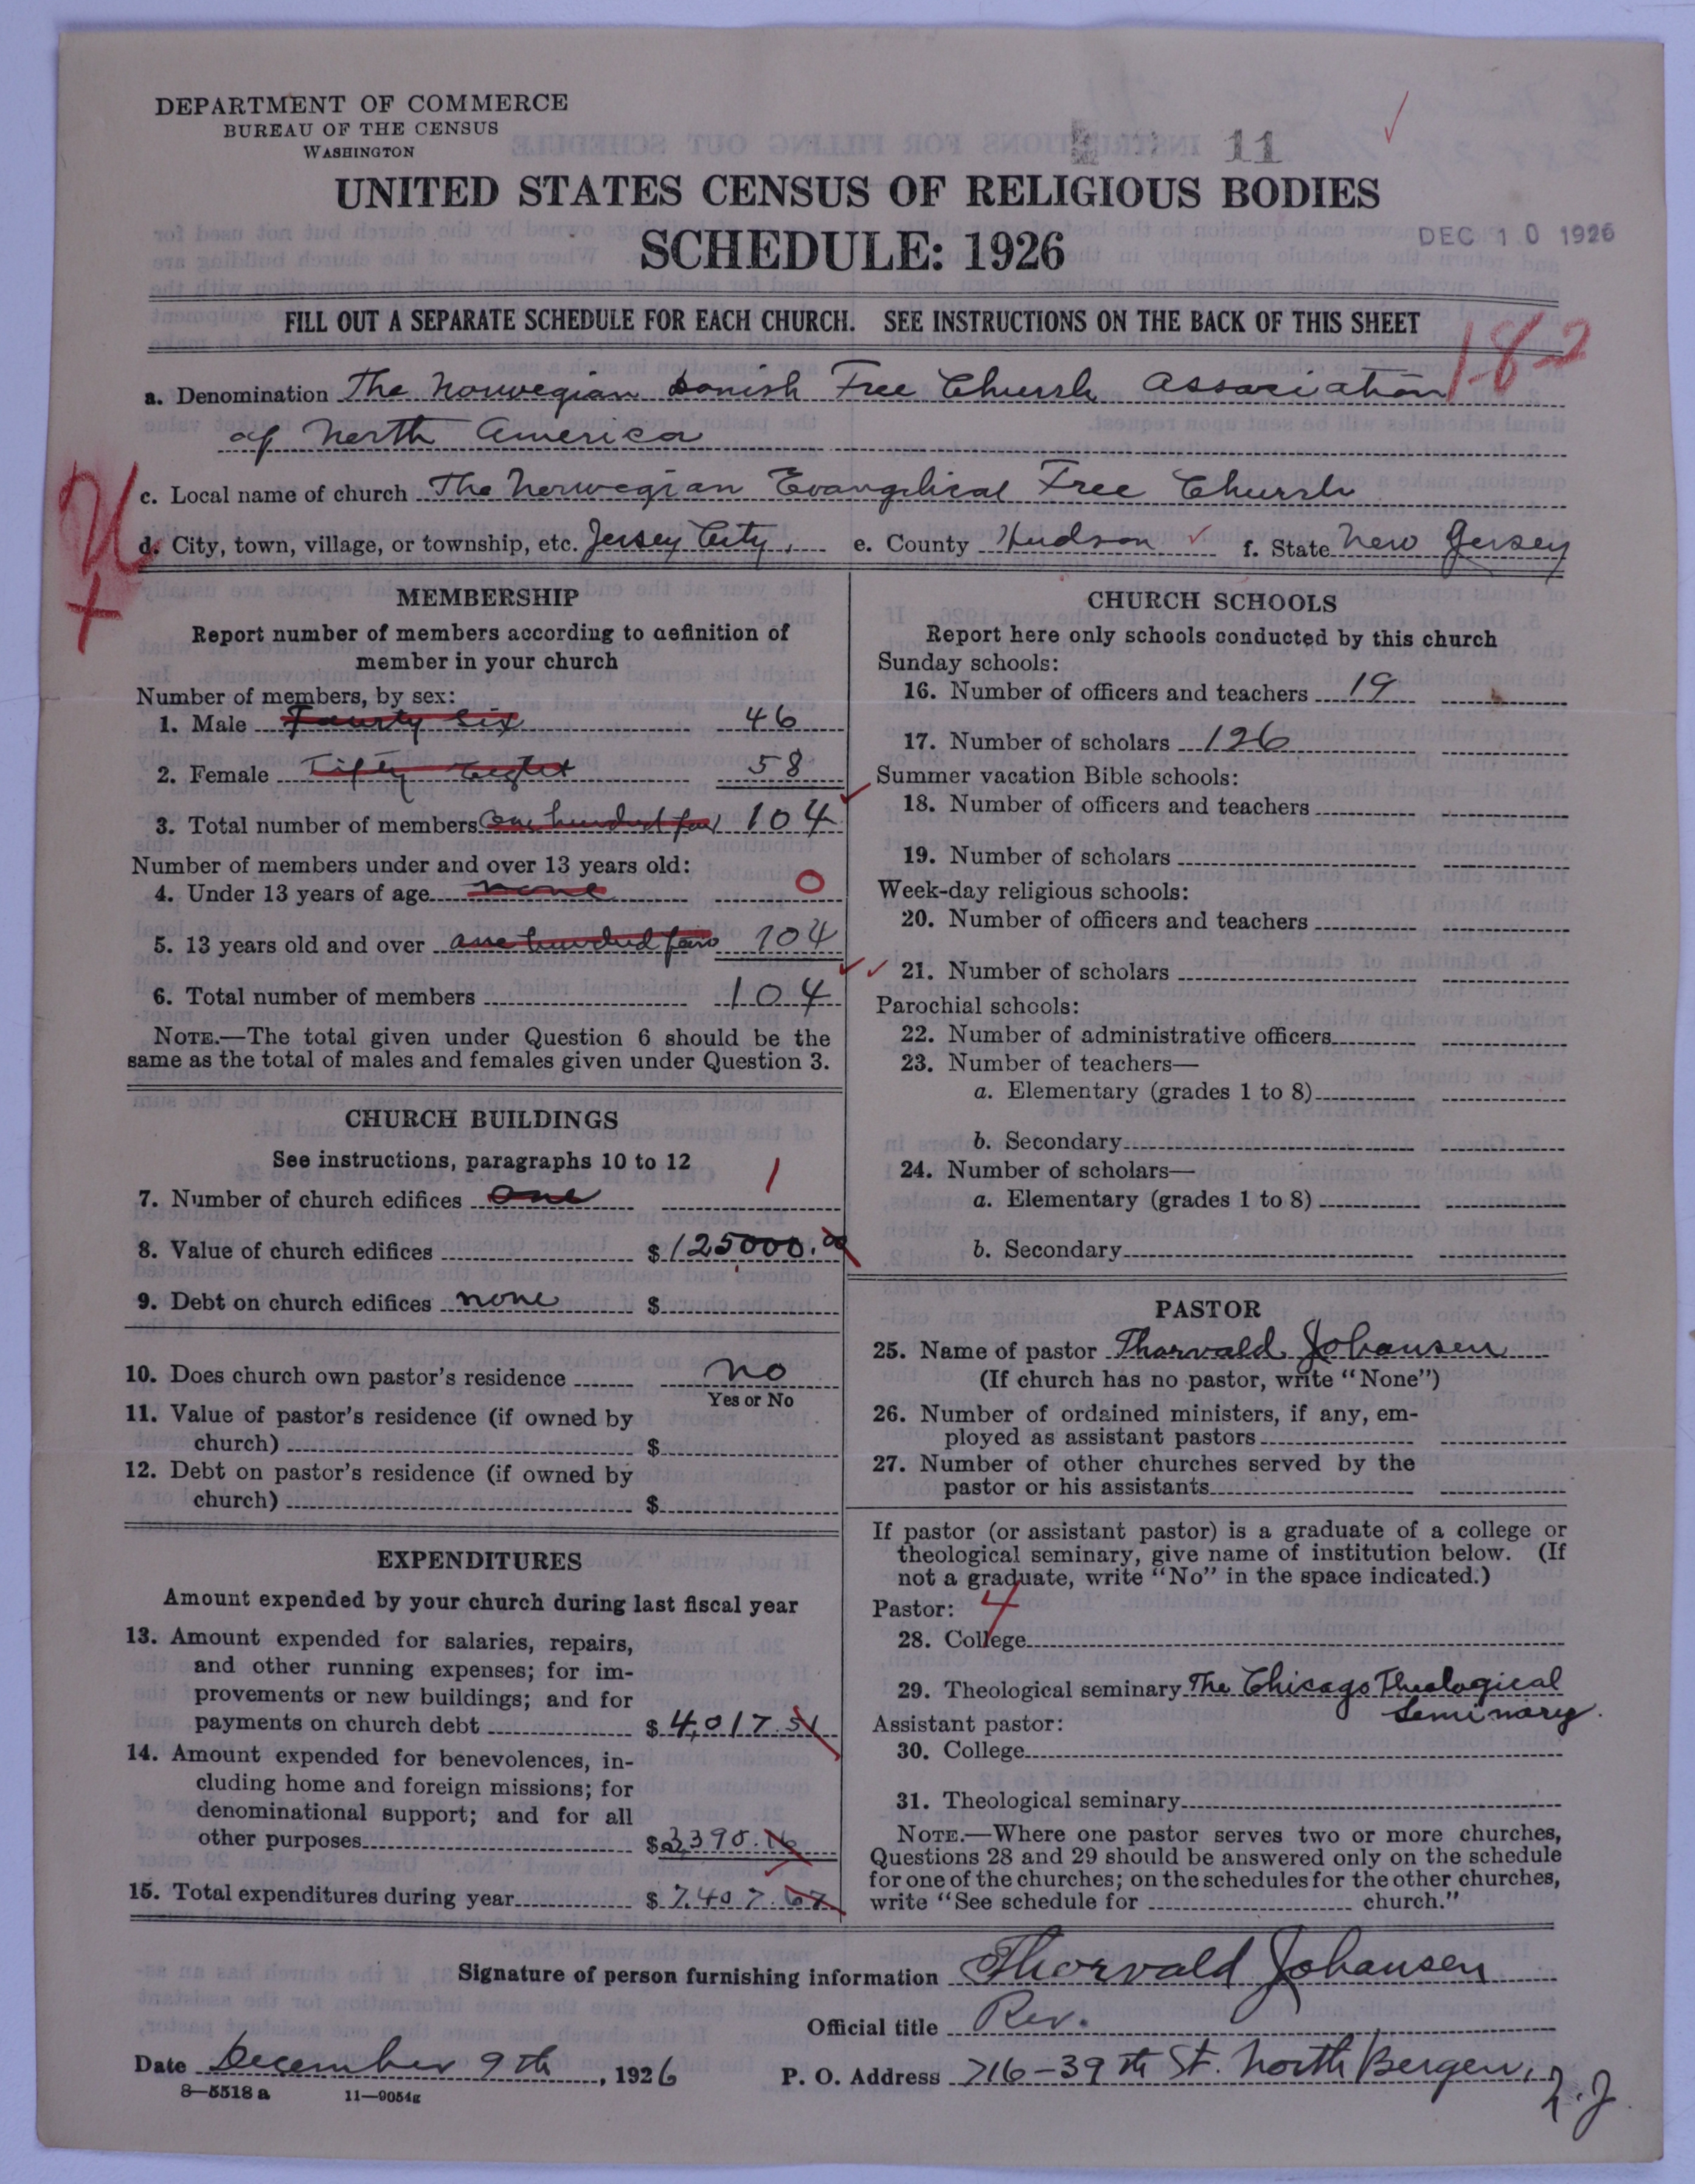 DEPARTMENT OF COMMERCE
BUREAU OF THE CENSUS
WASHINGTON
11
UNITED STATES CENSUS OF RELIGIOUS BODIES
SCHEDULE: 1926
DEC 10 1926
FILL OUT A SEPARATE SCHEDULE FOR EACH CHURCH. SEE INSTRUCTIONS ON THE BACK OF THIS SHEET
1-8-2
a. Denomination The Norwegian Danish Free Church Association
of North America
c. Local name of church The Norwegian Evangelical Free Church
d. City, town, village, or township, etc. Jersey City, e. County Hudson f. State New Jersey
MEMBERSHIP
Report number of members according to definition of
member in your church
Number of members, by sex:
1. Male Fourty Six 46
2. Female Fifty Eight 58
3. Total number of members One hundred four 104
Number of members under and over 13 years old:
4. Under 13 years of age none 0
5. 13 years old and over one hundred four 104
6. Total number of members 104
NOTE.—The total given under Question 6 should be the
same as the total of males and females given under Question 3.
CHURCH BUILDINGS
See instructions, paragraphs 10 to 12
7. Number of church edifices One 1
8. Value of church edifices $ 125000.00
9. Debt on church edifices none $
10. Does church own pastor's residence no
Yes or No
11. Value of pastor's residence (if owned by
church) $
12. Debt on pastor's residence (if owned by
church) $
EXPENDITURES
Amount expended by your church during last fiscal year
13. Amount expended for salaries, repairs,
and other running expenses; for im-
provements or new buildings; and for
payments on church debt $ 4,017.51
14. Amount expended for benevolences, in-
cluding home and foreign missions; for
denominational support; and for all
other purposes $ 3390.16
15. Total expenditures during year $ 7,407.67
CHURCH SCHOOLS
Report here only schools conducted by this church
Sunday schools:
16. Number of officers and teachers 19
17. Number of scholars 126
Summer vacation Bible schools:
18. Number of officers and teachers
19. Number of scholars
Week-day religious schools:
20. Number of officers and teachers
21. Number of scholars
Parochial schools:
22. Number of administrative officers
23. Number of teachers—
a. Elementary (grades 1 to 8)
b. Secondary
24. Number of scholars—
a. Elementary (grades 1 to 8)
b. Secondary
PASTOR
25. Name of pastor Thorvald Johansen
(If church has no pastor, write "None")
26. Number of ordained ministers, if any, em-
ployed as assistant pastors
27. Number of other churches served by the
pastor or his assistants
If pastor (or assistant pastor) is a graduate of a college or
theological seminary, give name of institution below. (If
not a graduate, write "No" in the space indicated.)
Pastor: 4
28. College
29. Theological seminary The Chicago Theological
Seminary.
Assistant pastor:
30. College
31. Theological seminary
NOTE.—Where one pastor serves two or more churches,
Questions 28 and 29 should be answered only on the schedule
for one of the churches; on the schedules for the other churches,
write "See schedule for church."
Signature of person furnishing information Thorvald Johansen
Official title Rev.
Date December 9th, 1926 P. O. Address 716-39th St. North Bergen, N.J.
8-5518a 11-9054g